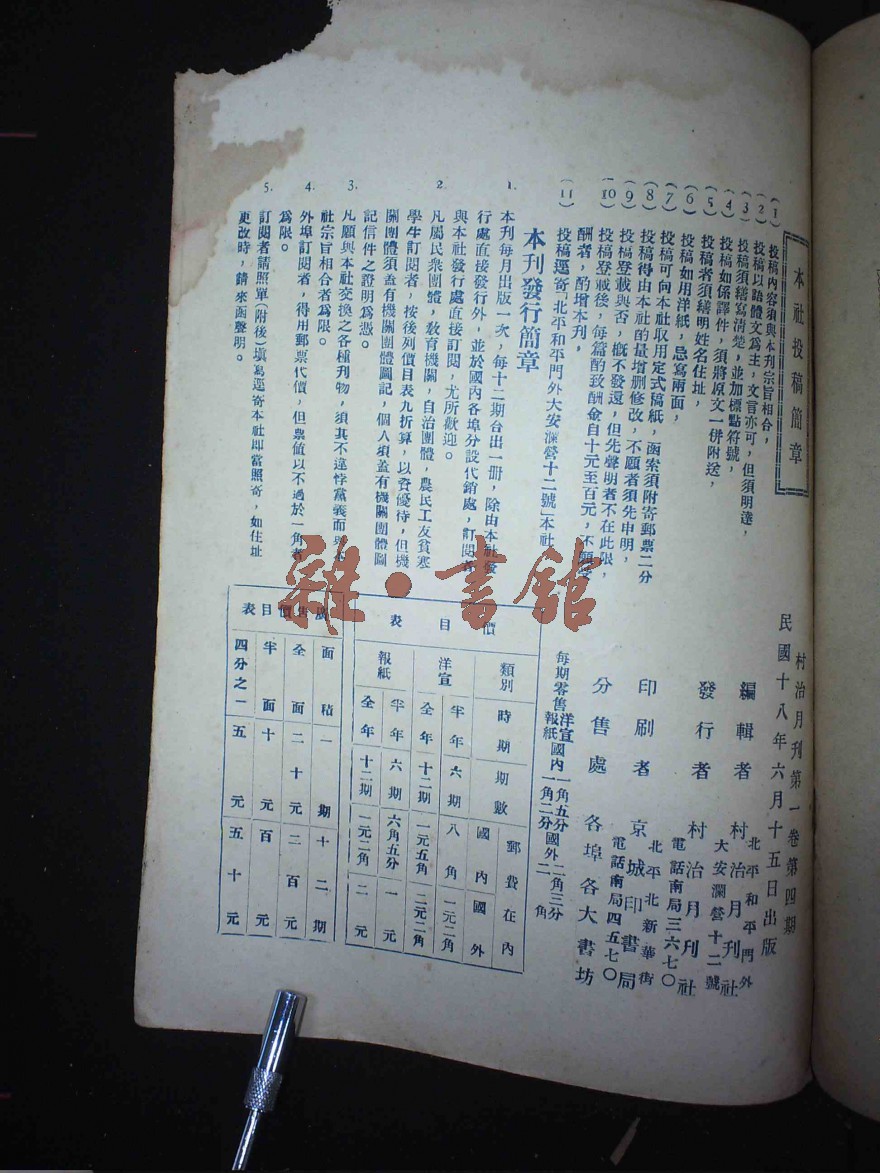 本社投稿簡章
(1) 投稿內容須與本刊宗旨相合，
(2) 投稿以語體文爲主，文言亦可，但須明達，
(3) 投稿須繕寫清楚，並加標點符號，
(4) 投稿如係譯件，須將原文一併附送，
(5) 投稿者須繕明姓名住址，
(6) 投稿如用洋紙，忌寫兩面，
(7) 投稿可向本社取用定式稿紙，函索須附寄郵票二分
(8) 投稿得由本社酌量增删修改，不願者須先申明，
(9) 投稿登載與否，槪不發還，但先聲明者不在此限，
(10) 投稿登載後，每篇酌致酬金自十元至百元，不願受
酬者，酌增本刊，
(11) 投稿逕寄「北平和平門外大安瀾營十二號」本社
本刊發行簡章
1. 本刊每月出版一次，每十二期合出一册，除由本社發
行處直接發行外，並於國內各埠分設代銷處，訂閱者
與本社發行處直接訂閱，尤所歡迎。
2. 凡屬民衆團體，敎育機關，自治團體，農民工友貧寒
學生訂閱者，按後列價目表九折算，以資優待，但機
關團體須蓋有機關團體圖記，個人項蓋有機關團體圖
記信件之證明爲憑。
3. 凡願與本社交換之各種刊物，須其不違悖黨義而與本
社宗旨相合者爲限。
4. 外埠訂閱者，得用郵票代價，但票値以不過於一角者
爲限。
5. 訂閱者請照單(附後)塡寫逕寄本社卽當照寄，如住址
更改時，請來函聲明。
村治月刊第一卷第四期
民國十八年六月十五日出版
編輯者 村治月刊社
北平和平門外
大安瀾營十二號
發行者 村治月刊社
電話南局三六七〇
印刷者 京城印書局
北平北新華街
電話南局四五七〇
分售處 各埠各大書坊
每期零售洋宣國內一角五分國外二角三分
報紙 一角二分 二角
價目表
類別 時期 期數 郵費在內 國內 國外
洋宣 半年 六期 八角 一元二角
全年 十二期 一元五角 二元二角
報紙 半年 六期 六角五分 一元
全年 十二期 一元二角 二元
廣告價目表
面積 一期 十二期
全面 二十元 二百元
半面 十元 百元
四分之一 五元 五十元
雜·書館